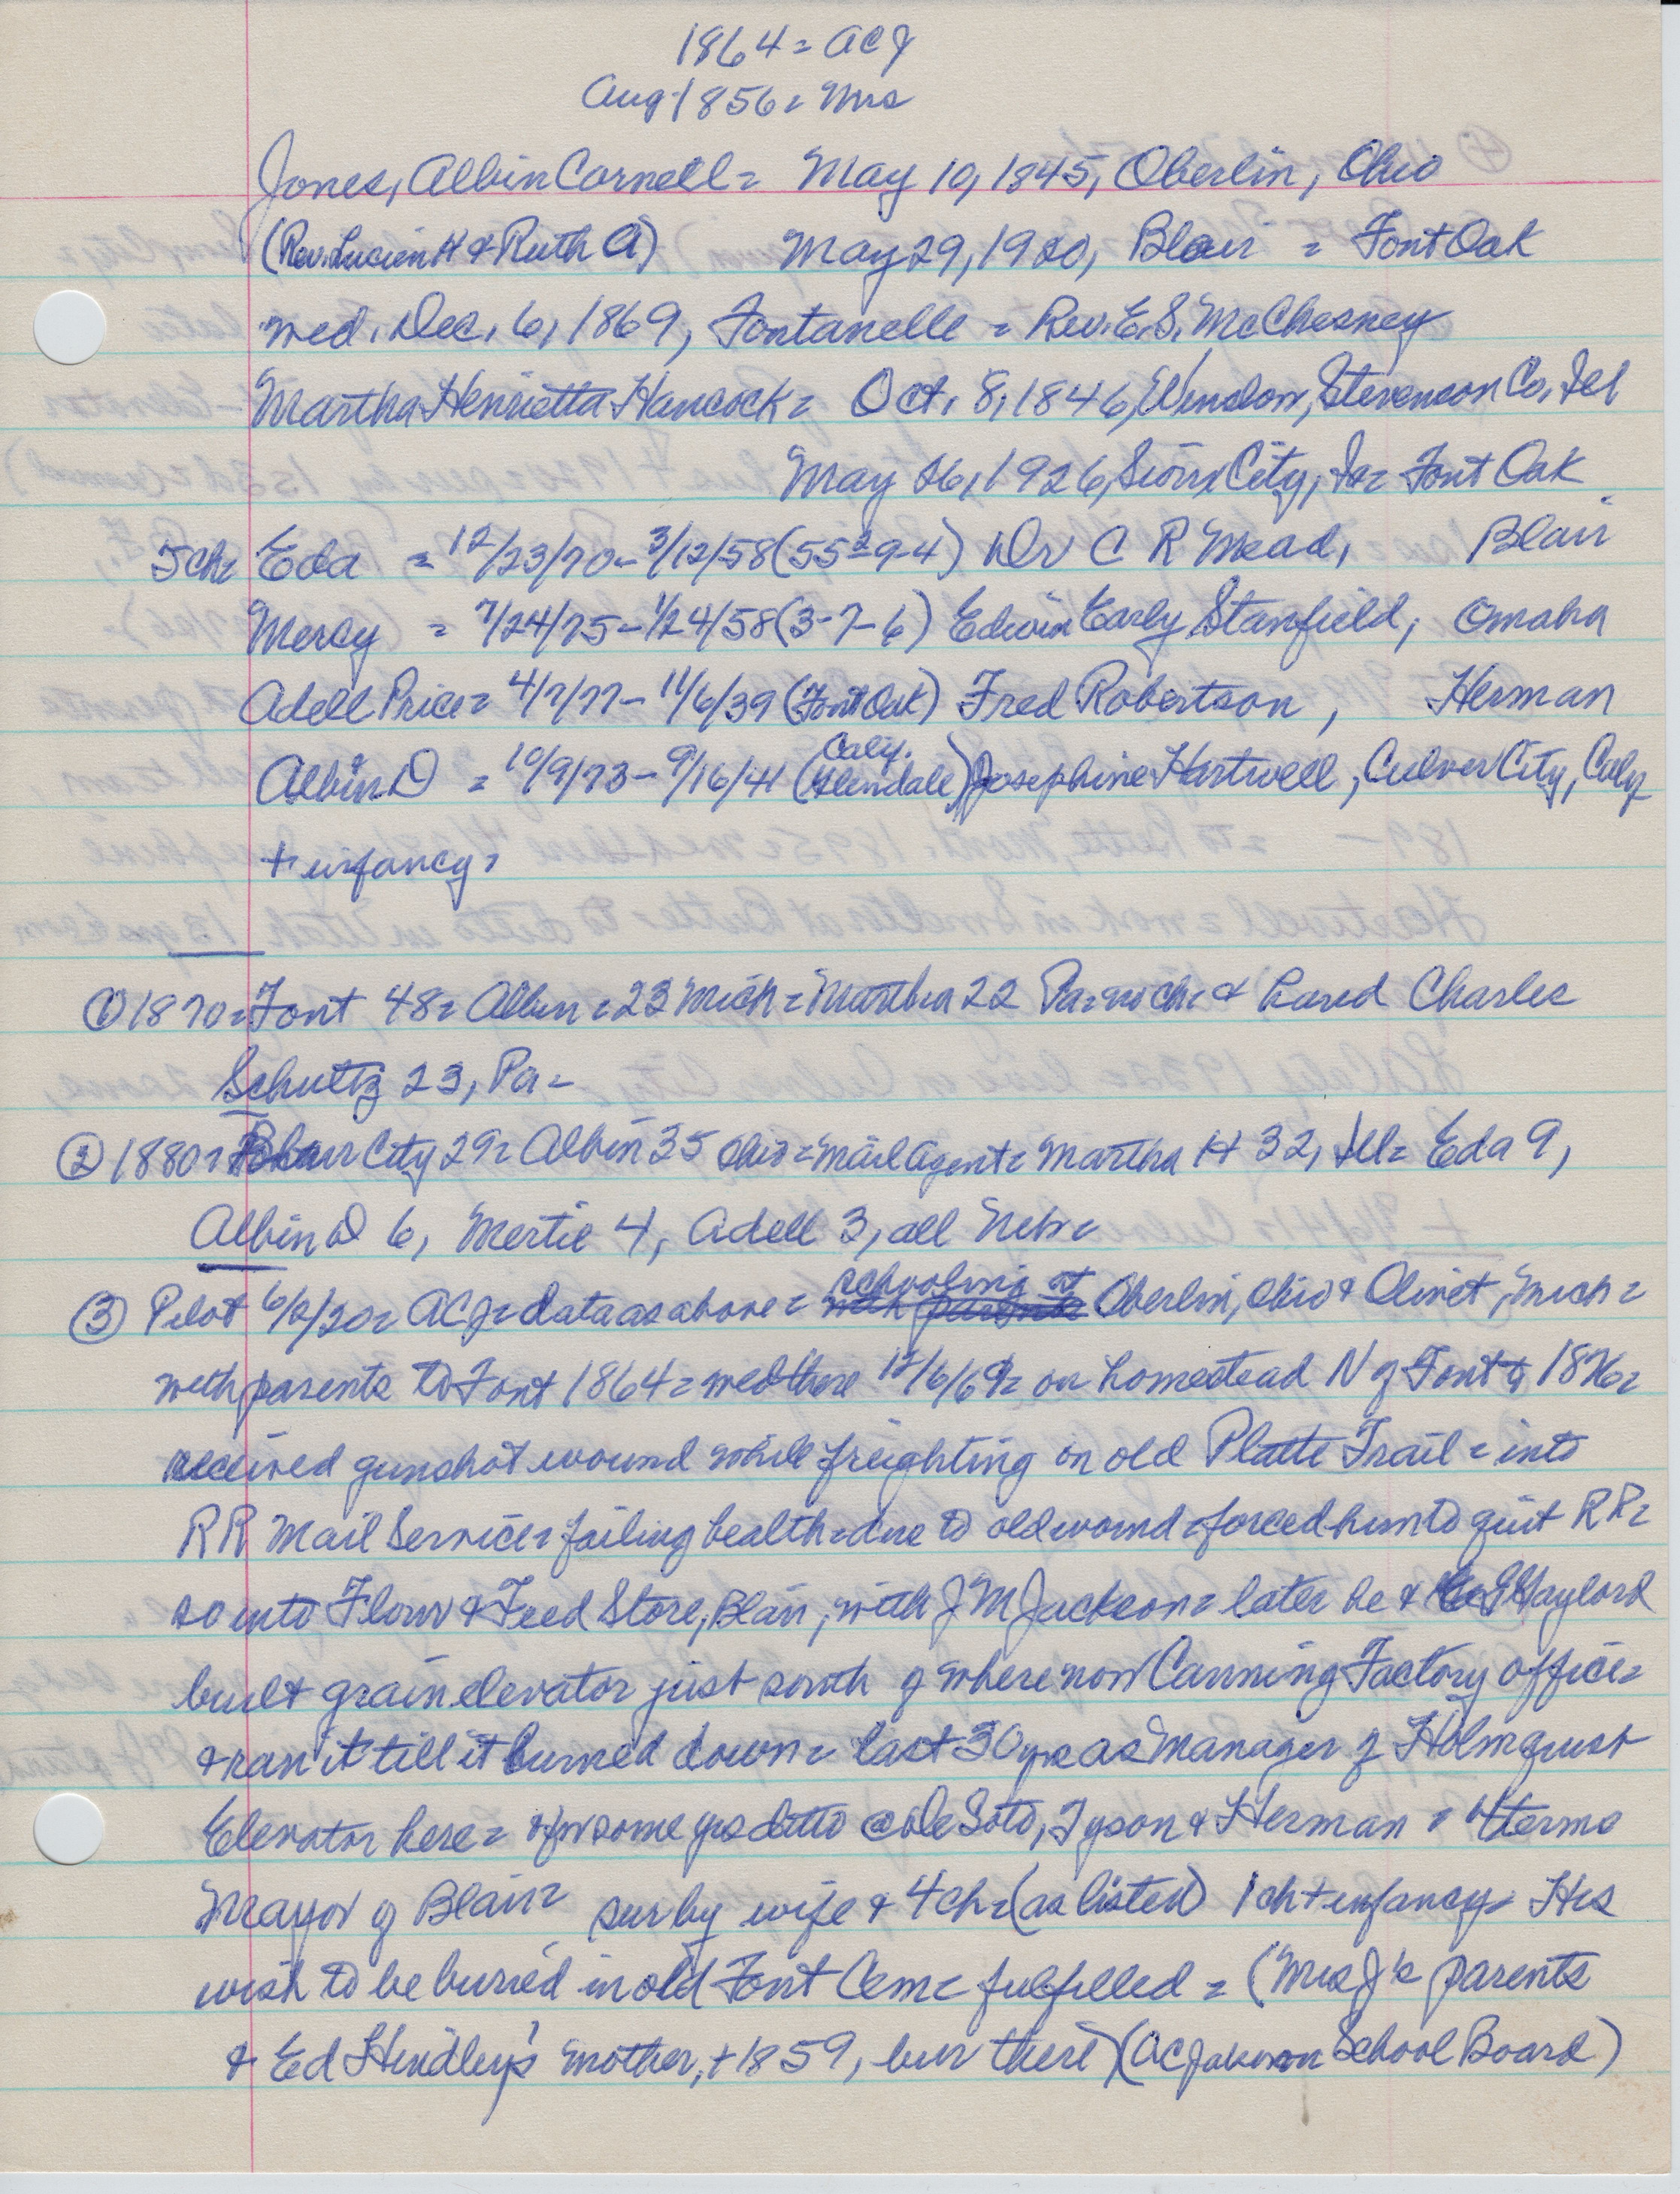 1864 = ACJ
Aug 1856 = Mrs
Jones, Albin Cornell = May 10, 1845, Oberlin, Ohio
(Rev. Lucien H & Ruth A) May 29, 1920, Blair = Font Oak
wed. Dec. 6, 1869, Fontanelle = Rev. E. S. McChesney
Martha Henrietta Hancock = Oct. 8, 1846, Winslow, Stevenson Co, Ill
May 26, 1926, Sioux City, Ia = Font Oak
5 ch = Eda = 12/23/70 - 3/12/58 (55-9-4) Dr C R Mead, Blair
Mercy = 7/24/75 - 1/24/58 (3-7-6) Edwin Early Stanfield, Omaha
Adell Price = 4/7/77 - 11/6/39 (Font Oak) Fred Robertson, Herman
Albin D = 10/9/73 - 9/16/41 (Glendale Calif.) Josephine Hartwell, Culver City, Calif
+ infancy =
① 1870 = Font 48 = Albin = 23 Mich = Martha 22 Pa = no ch = & Charles
Schultz 23, Pa =
② 1880 = Blair City 29 = Albin 35 Ohio = mail agent = Martha H 32, Ill = Eda 9,
Albin D 6, Mertie 4, Adell 3, all Neb =
③ Pilot 6/2/20 = ACJ = data as above = schooling at Oberlin, Ohio & Olivet, Mich =
with parents to Font 1864 = wed there 12/6/69 = on homestead N of Font to 1876 =
received gunshot wound while freighting on old Platte Trail = into
RR Mail Service = failing health = due to old wound = forced him to quit RR =
so into Flour & Feed Store, Blair, with J M Jackson = later he & Haylord
built grain elevator just south of where now Canning Factory office =
& ran it till it burned down = last 30 yrs as Manager of Holmquist
Elevator here = & for some yrs ditto @ De Soto, Tyson & Herman = 4 terms
Mayor of Blair = sur by wife & 4 ch = (as listed) 1 ch + infancy = His
wish to be buried in old Font Cem = fulfilled = (Mrs J's parents
& Ed Hindley's mother, + 1859, bur there) (ACJ on School Board)